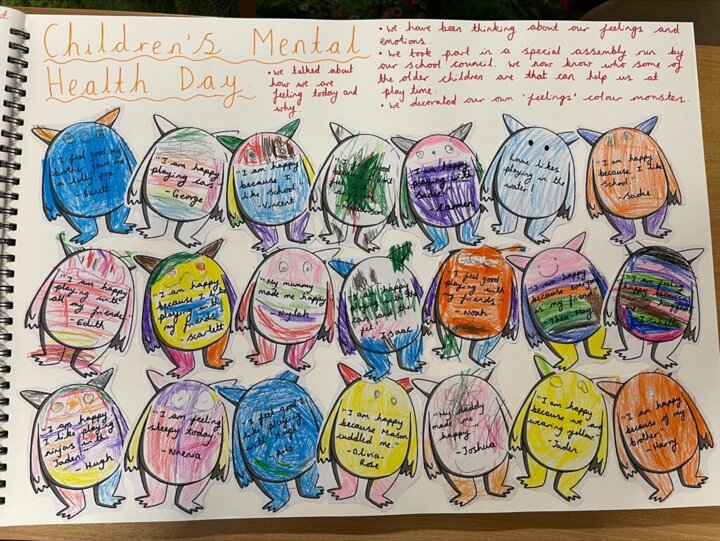 Children's Mental
Health Day.
• we talked about
how we are
feeling today and
why.
• we have been thinking about our feelings and
emotions.
• we took part in a special assembly run by
our school council. We now know who some of
the older children are that can help us at
play time.
• we decorated our own 'feelings' colour monster.
"I feel good my
brother gave me
a lolly pop."
"I am happy
playing cars."
- George
"I am happy
because I
like school."
Vincent
good
"I am happy
playing with
"
Love likes
playing in the
water."
"I am happy
because I like
school."
- Sadie
"I am happy
playing with
all my friends."
- Edith
"I am happy
because I
playing with
my friends."
- Scarlett
"My mummy
made me happy."
- Nylah
Isaac
"I feel good
playing with
my friends."
- Noah
"I am happy
because
is my friend."
May
"I am feeling
happy
"I am happy
I like playing
ninjas with
Jaden."
- Hugh
"I am feeling
sleepy today."
"I feel good I
like playing
with
"I am happy
because Mason
cuddled me."
- Olivia-
Rose
"My daddy
made me
happy."
- Joshua
"I am happy
because we are
wearing yellow."
- Jaden
"I am happy
because of my
brother."
- Harry